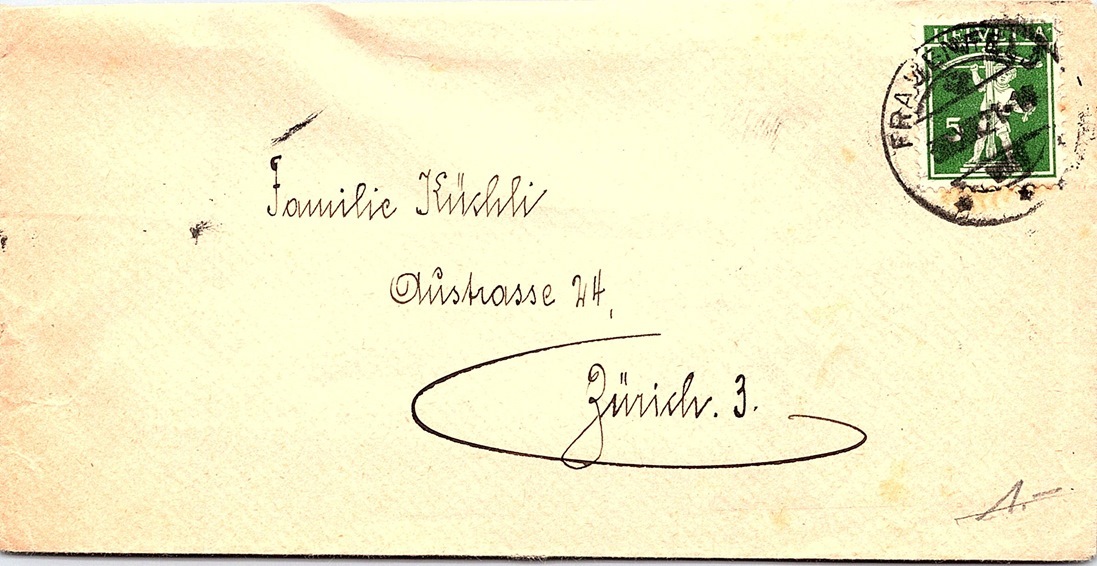 HELVETIA
FRAUENFELD
5
Familie Küchli
Austrasse 24,
Zürich. 3.
1.-